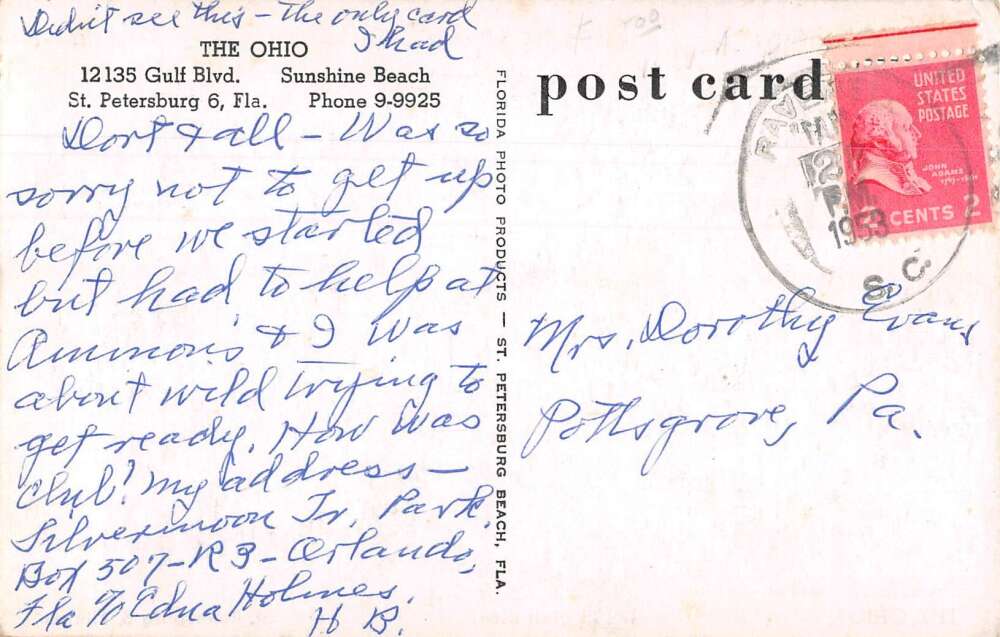 Didn't see this - The only card
I had
THE OHIO
12135 Gulf Blvd. Sunshine Beach
St. Petersburg 6, Fla. Phone 9-9925
Dort & all - Was so
sorry not to get up
before we started
but had to help at
Ammon's & I was
about wild trying to
get ready. How was
Club? My address -
Silvermoon Tr. Park.
Box 507-R3-Orlando,
Fla % Edna Holmes.
H B.
FLORIDA PHOTO PRODUCTS — ST. PETERSBURG BEACH, FLA.
post card
UNITED
STATES
POSTAGE
JOHN
ADAMS
CENTS 2
1953
S. C.
Mrs. Dorothy Evans
Pottsgrove, Pa.